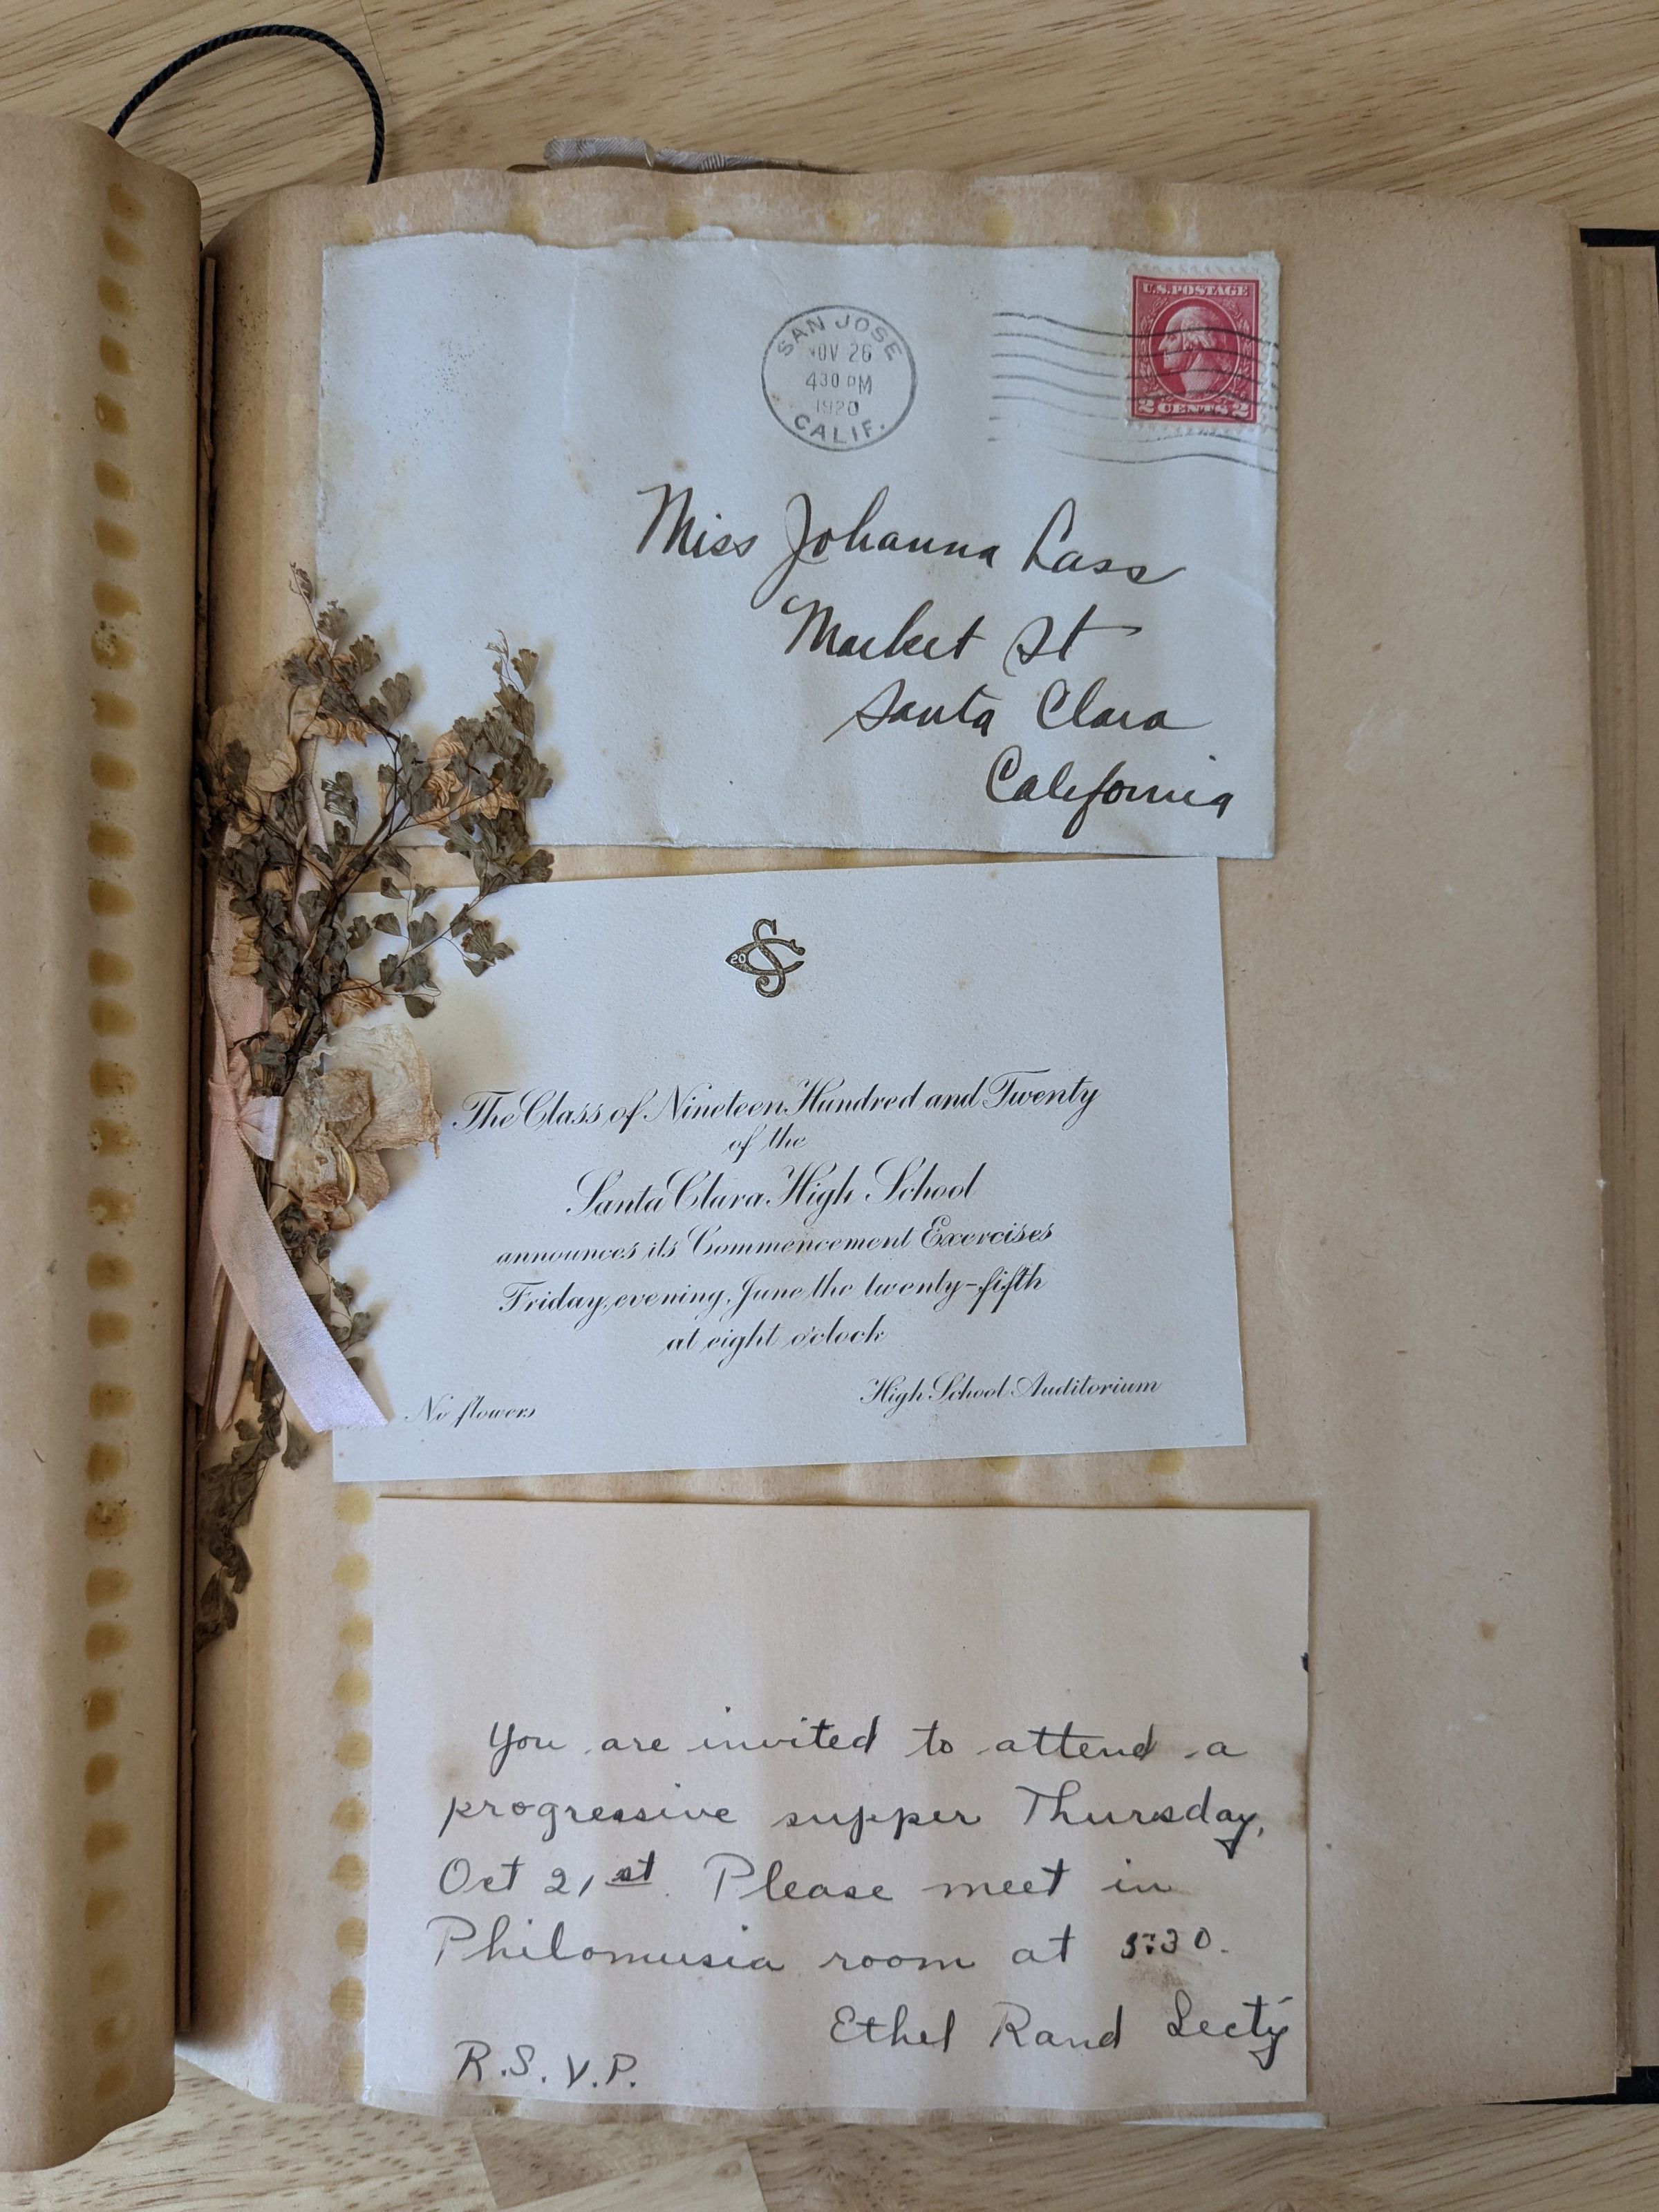 SAN JOSE
NOV 26
430 PM
1920
CALIF.
U.S. POSTAGE
2 CENTS 2
Miss Johanna Lass
Market St
Santa Clara
California
20
SC
The Class of Nineteen Hundred and Twenty
of the
Santa Clara High School
announces its Commencement Exercises
Friday, evening, June the twenty-fifth
at eight o'clock
High School Auditorium
No flowers
You are invited to attend a
progressive supper Thursday,
Oct 21st. Please meet in
Philomusia room at 5:30.
Ethel Rand Secty
R.S.V.P.